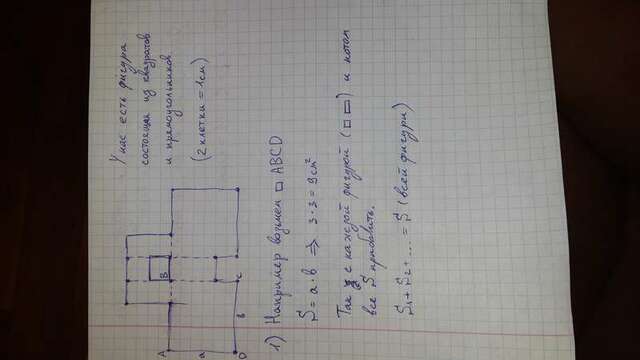 У нас есть фигура
состоящая из квадратов
и прямоугольников
(2 клетки = 1см)
A
B
a
D
в
C
1) Например возьмем □ ABCD
S = a · в ⇒ 3 · 3 = 9см²
Так с каждой фигурой (□ ▭) и потом
все S прибавить.
S₁ + S₂ + ... = S (всей фигури)